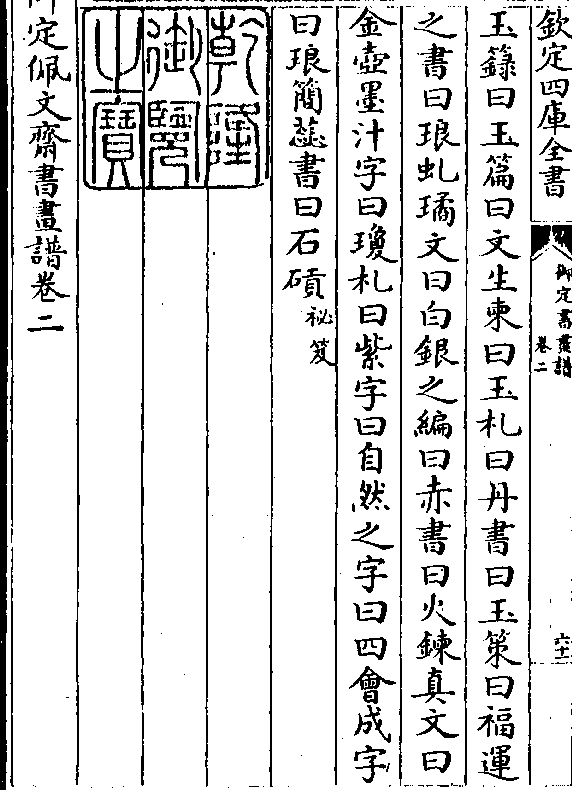 欽定四庫全書
御定書畫譜
卷二
六十一
玉籙曰玉篇曰文生東曰玉札曰丹書曰玉策曰福運
之書曰琅虬璚文曰白銀之編曰赤書曰火鍊真文曰
金壺墨汁字曰瓊札曰紫字曰自然之字曰四會成字
曰琅簡蘂書曰石磧祕笈
乾隆
御覽
之寶
御定佩文齋書畫譜卷二